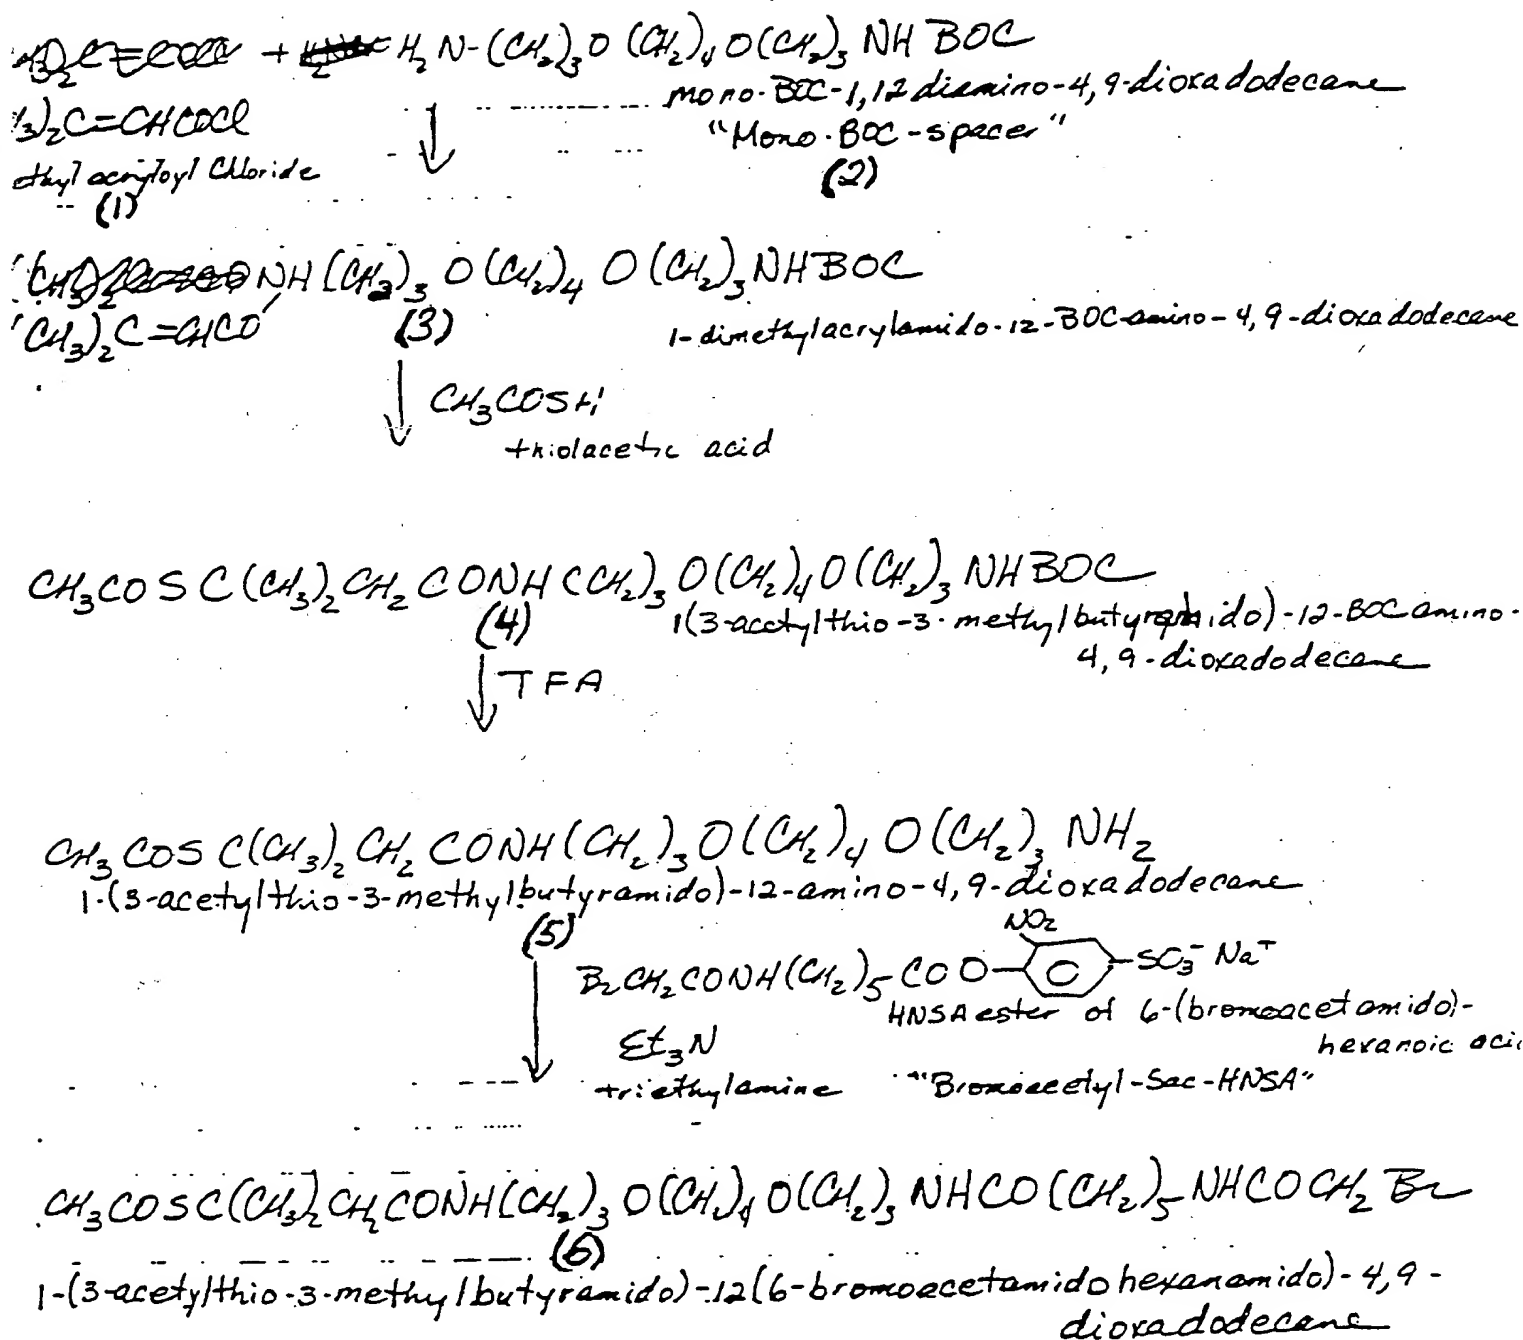 + H₂N-(CH₂)₃O(CH₂)₄O(CH₂)₃NHBOC
mono-BOC-1,12diamino-4,9-dioxadodecane
₃)₂C=CHCOCl
"Mono-BOC-spacer"
ethyl acryloyl Chloride
(1)
(2)
NH(CH₂)₃O(CH₂)₄O(CH₂)₃NHBOC
(CH₃)₂C=CHCO
(3)
1-dimethylacrylamido-12-BOC-amino-4,9-dioxadodecane
CH₃COSH
thiolacetic acid
CH₃COSC(CH₃)₂CH₂CONH(CH₂)₃O(CH₂)₄O(CH₂)₃NHBOC
(4)
1(3-acetylthio-3-methylbutyramido)-12-BOCamino-
4,9-dioxadodecane
TFA
CH₃COSC(CH₃)₂CH₂CONH(CH₂)₃O(CH₂)₄O(CH₂)₃NH₂
1-(3-acetylthio-3-methylbutyramido)-12-amino-4,9-dioxadodecane
(5)
NO₂
BrCH₂CONH(CH₂)₅COO SO₃⁻Na⁺
HNSA ester of 6-(bromoacetamido)-
hexanoic aci
Et₃N
triethylamine
"Bromoacetyl-Sac-HNSA"
CH₃COSC(CH₃)₂CH₂CONH(CH₂)₃O(CH₂)₄O(CH₂)₃NHCO(CH₂)₅NHCOCH₂Br
(6)
1-(3-acetylthio-3-methylbutyramido)-12(6-bromoacetamidohexanamido)-4,9-
dioxadodecane